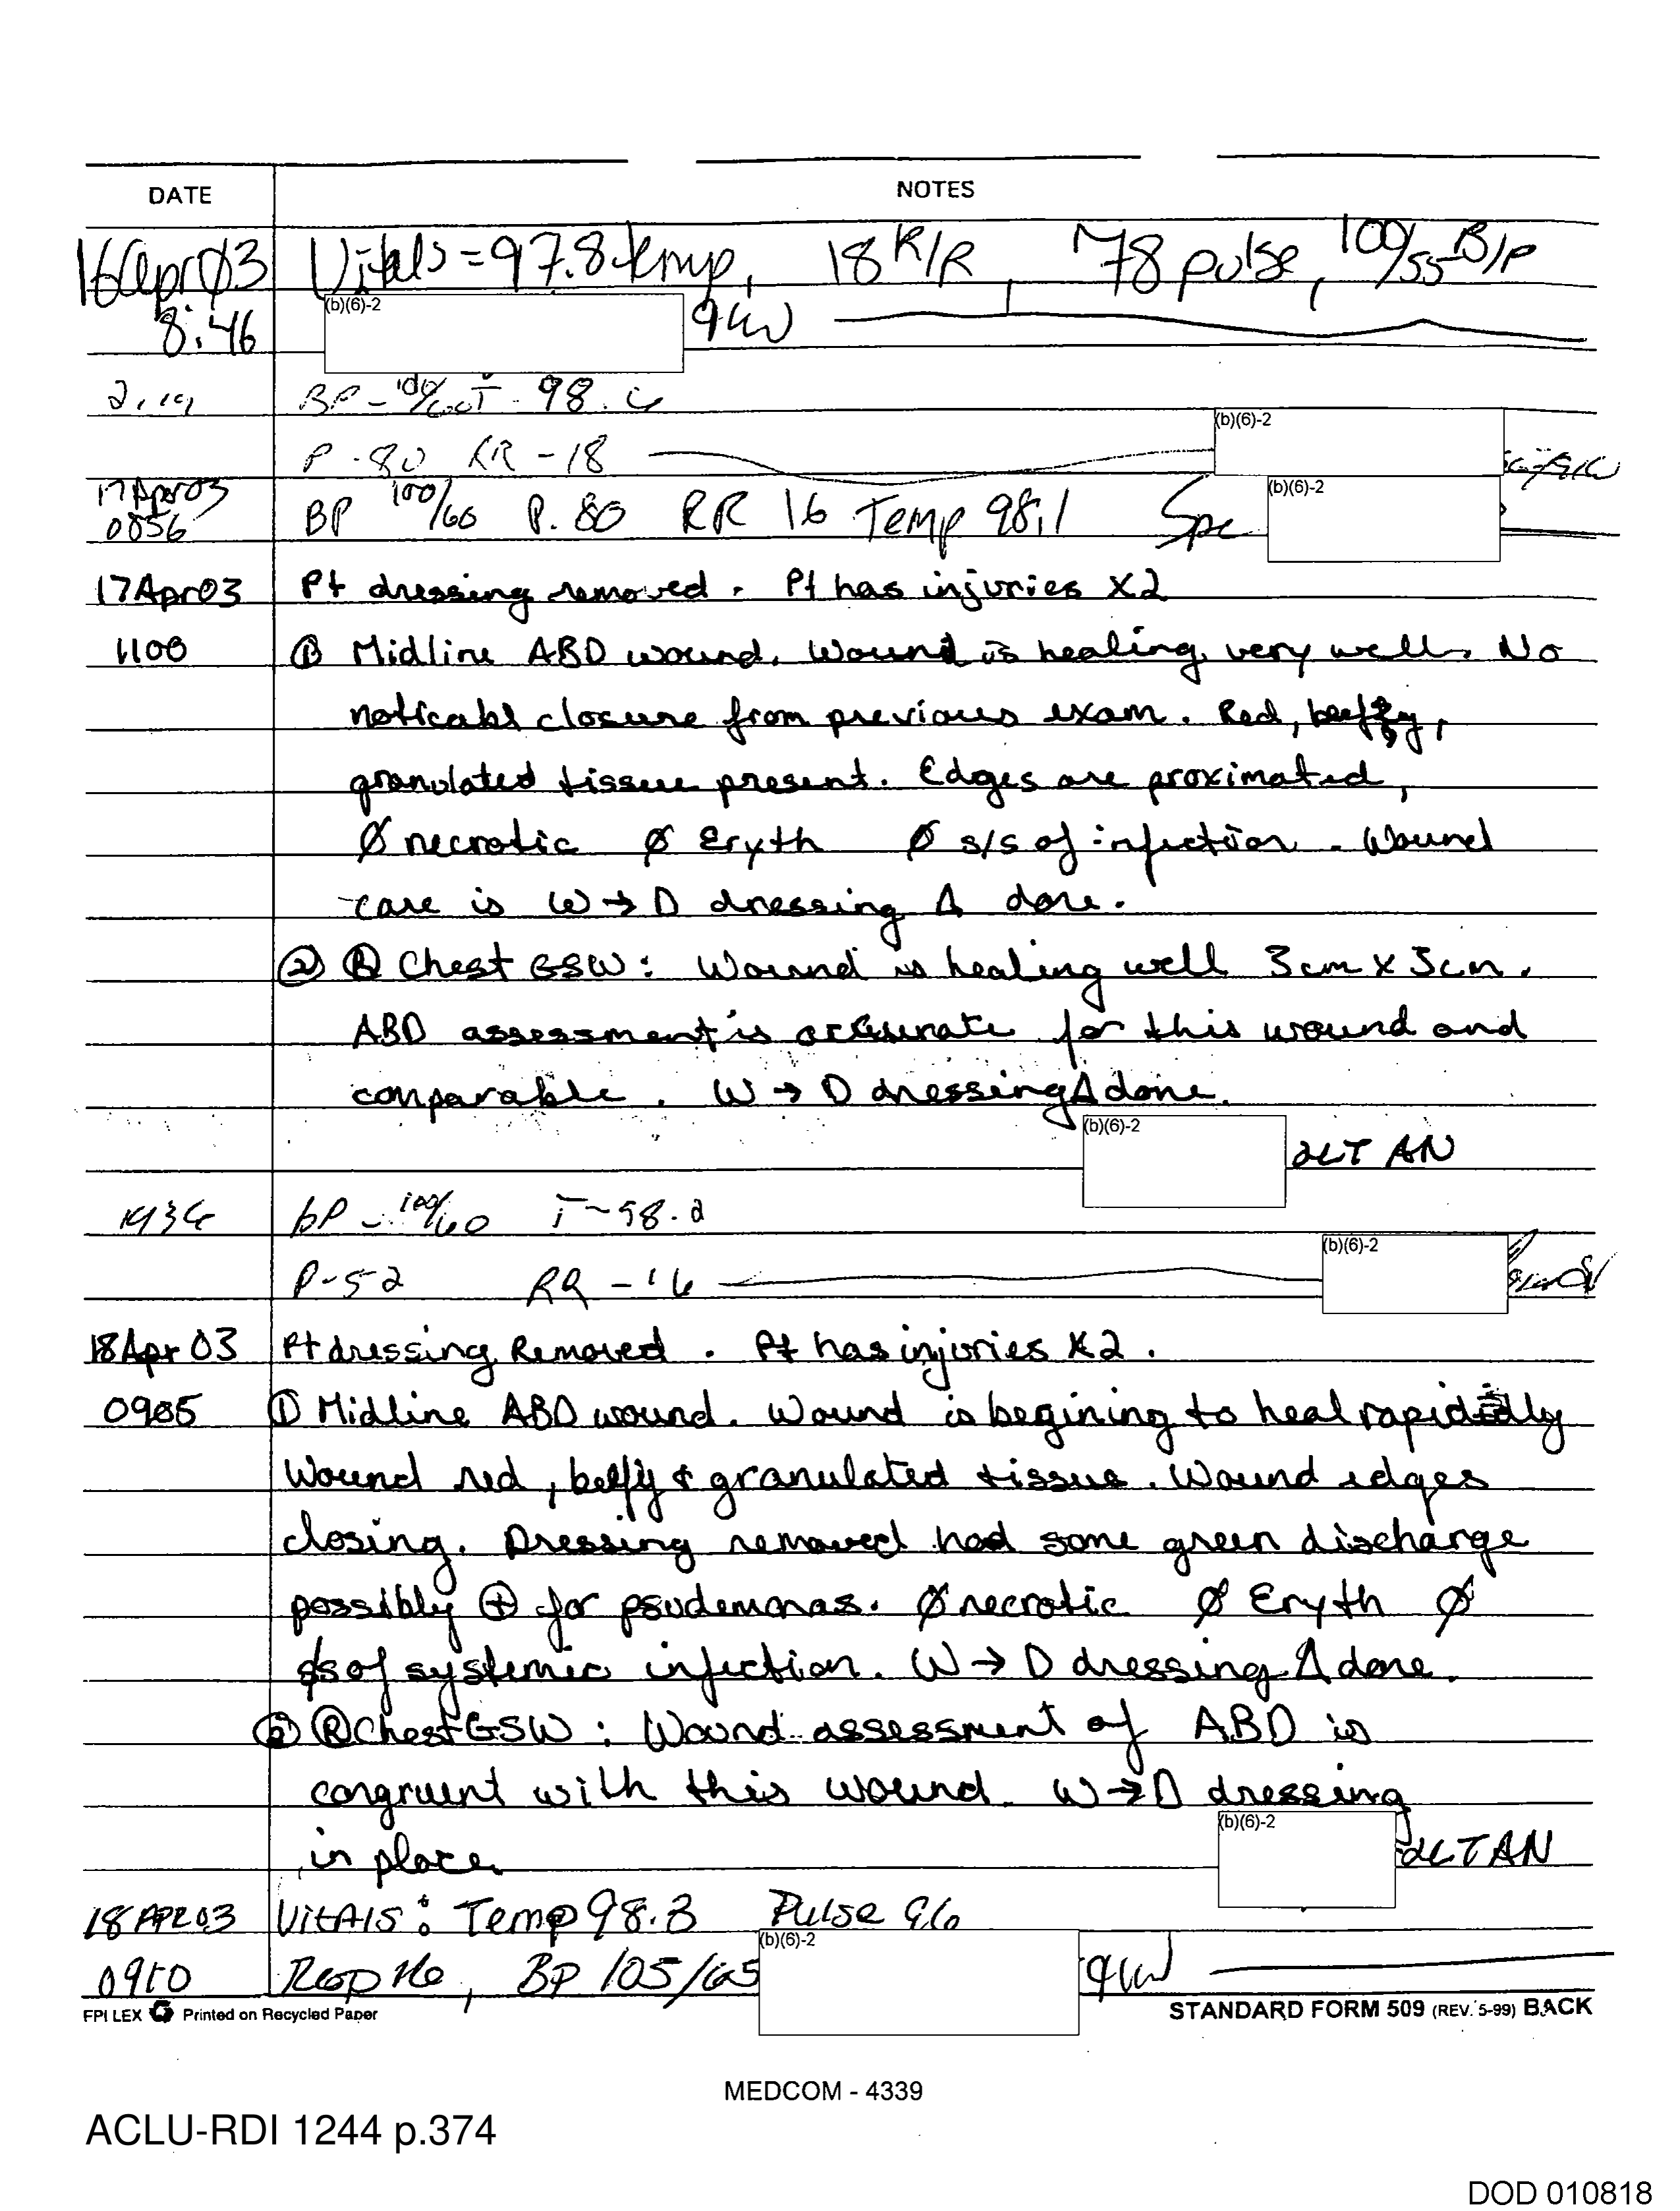 DATE NOTES
16Apr03 Vitals = 97.8 temp, 18 R/R, 78 pulse, 100/55 B/P
8:46 (b)(6)-2 91W
BP - 100/60 T - 98.6
P - 80 RR - 18 (b)(6)-2
17Apr03 BP 100/60 P. 80 RR 16 Temp 98.1 Spc (b)(6)-2
0856
17Apr03 Pt dressing removed. Pt has injuries X2
1100 ① Midline ABD wound. Wound is healing very well. No
noticabl closure from previous exam. Red, beefy,
granulated tissue present. Edges are proximated,
Ø necrotic Ø Eryth Ø s/s of infection. Wound
care is W → D dressing Δ done.
② Ⓡ Chest GSW: Wound is healing well 3cm x 3cm.
ABD assessment is accurate for this wound and
comparable. W → D dressing Δ done.
(b)(6)-2 2LT AN
1936 BP - 100/60 T - 98.2
P-52 RR - 16 (b)(6)-2
18Apr03 Pt dressing Removed. Pt has injuries X2.
0905 ① Midline ABD wound. Wound is begining to heal rapidly
Wound red, beefy & granulated tissue. Wound edges
closing. Dressing removed had some green discharge
possibly ⊕ for psudemonas. Ø necrotic Ø Eryth Ø
s/s of systemic infection. W → D dressing Δ done.
② Ⓡ Chest GSW: Wound assessment of ABD is
congruent with this wound. W → D dressing
in place. (b)(6)-2 2LT AN
18APR03 Vitals: Temp 98.3 Pulse 96
0910 Resp 16, BP 105/65 (b)(6)-2 91W
FPI LEX Printed on Recycled Paper STANDARD FORM 509 (REV. 5-99) BACK
MEDCOM - 4339
ACLU-RDI 1244 p.374
DOD 010818